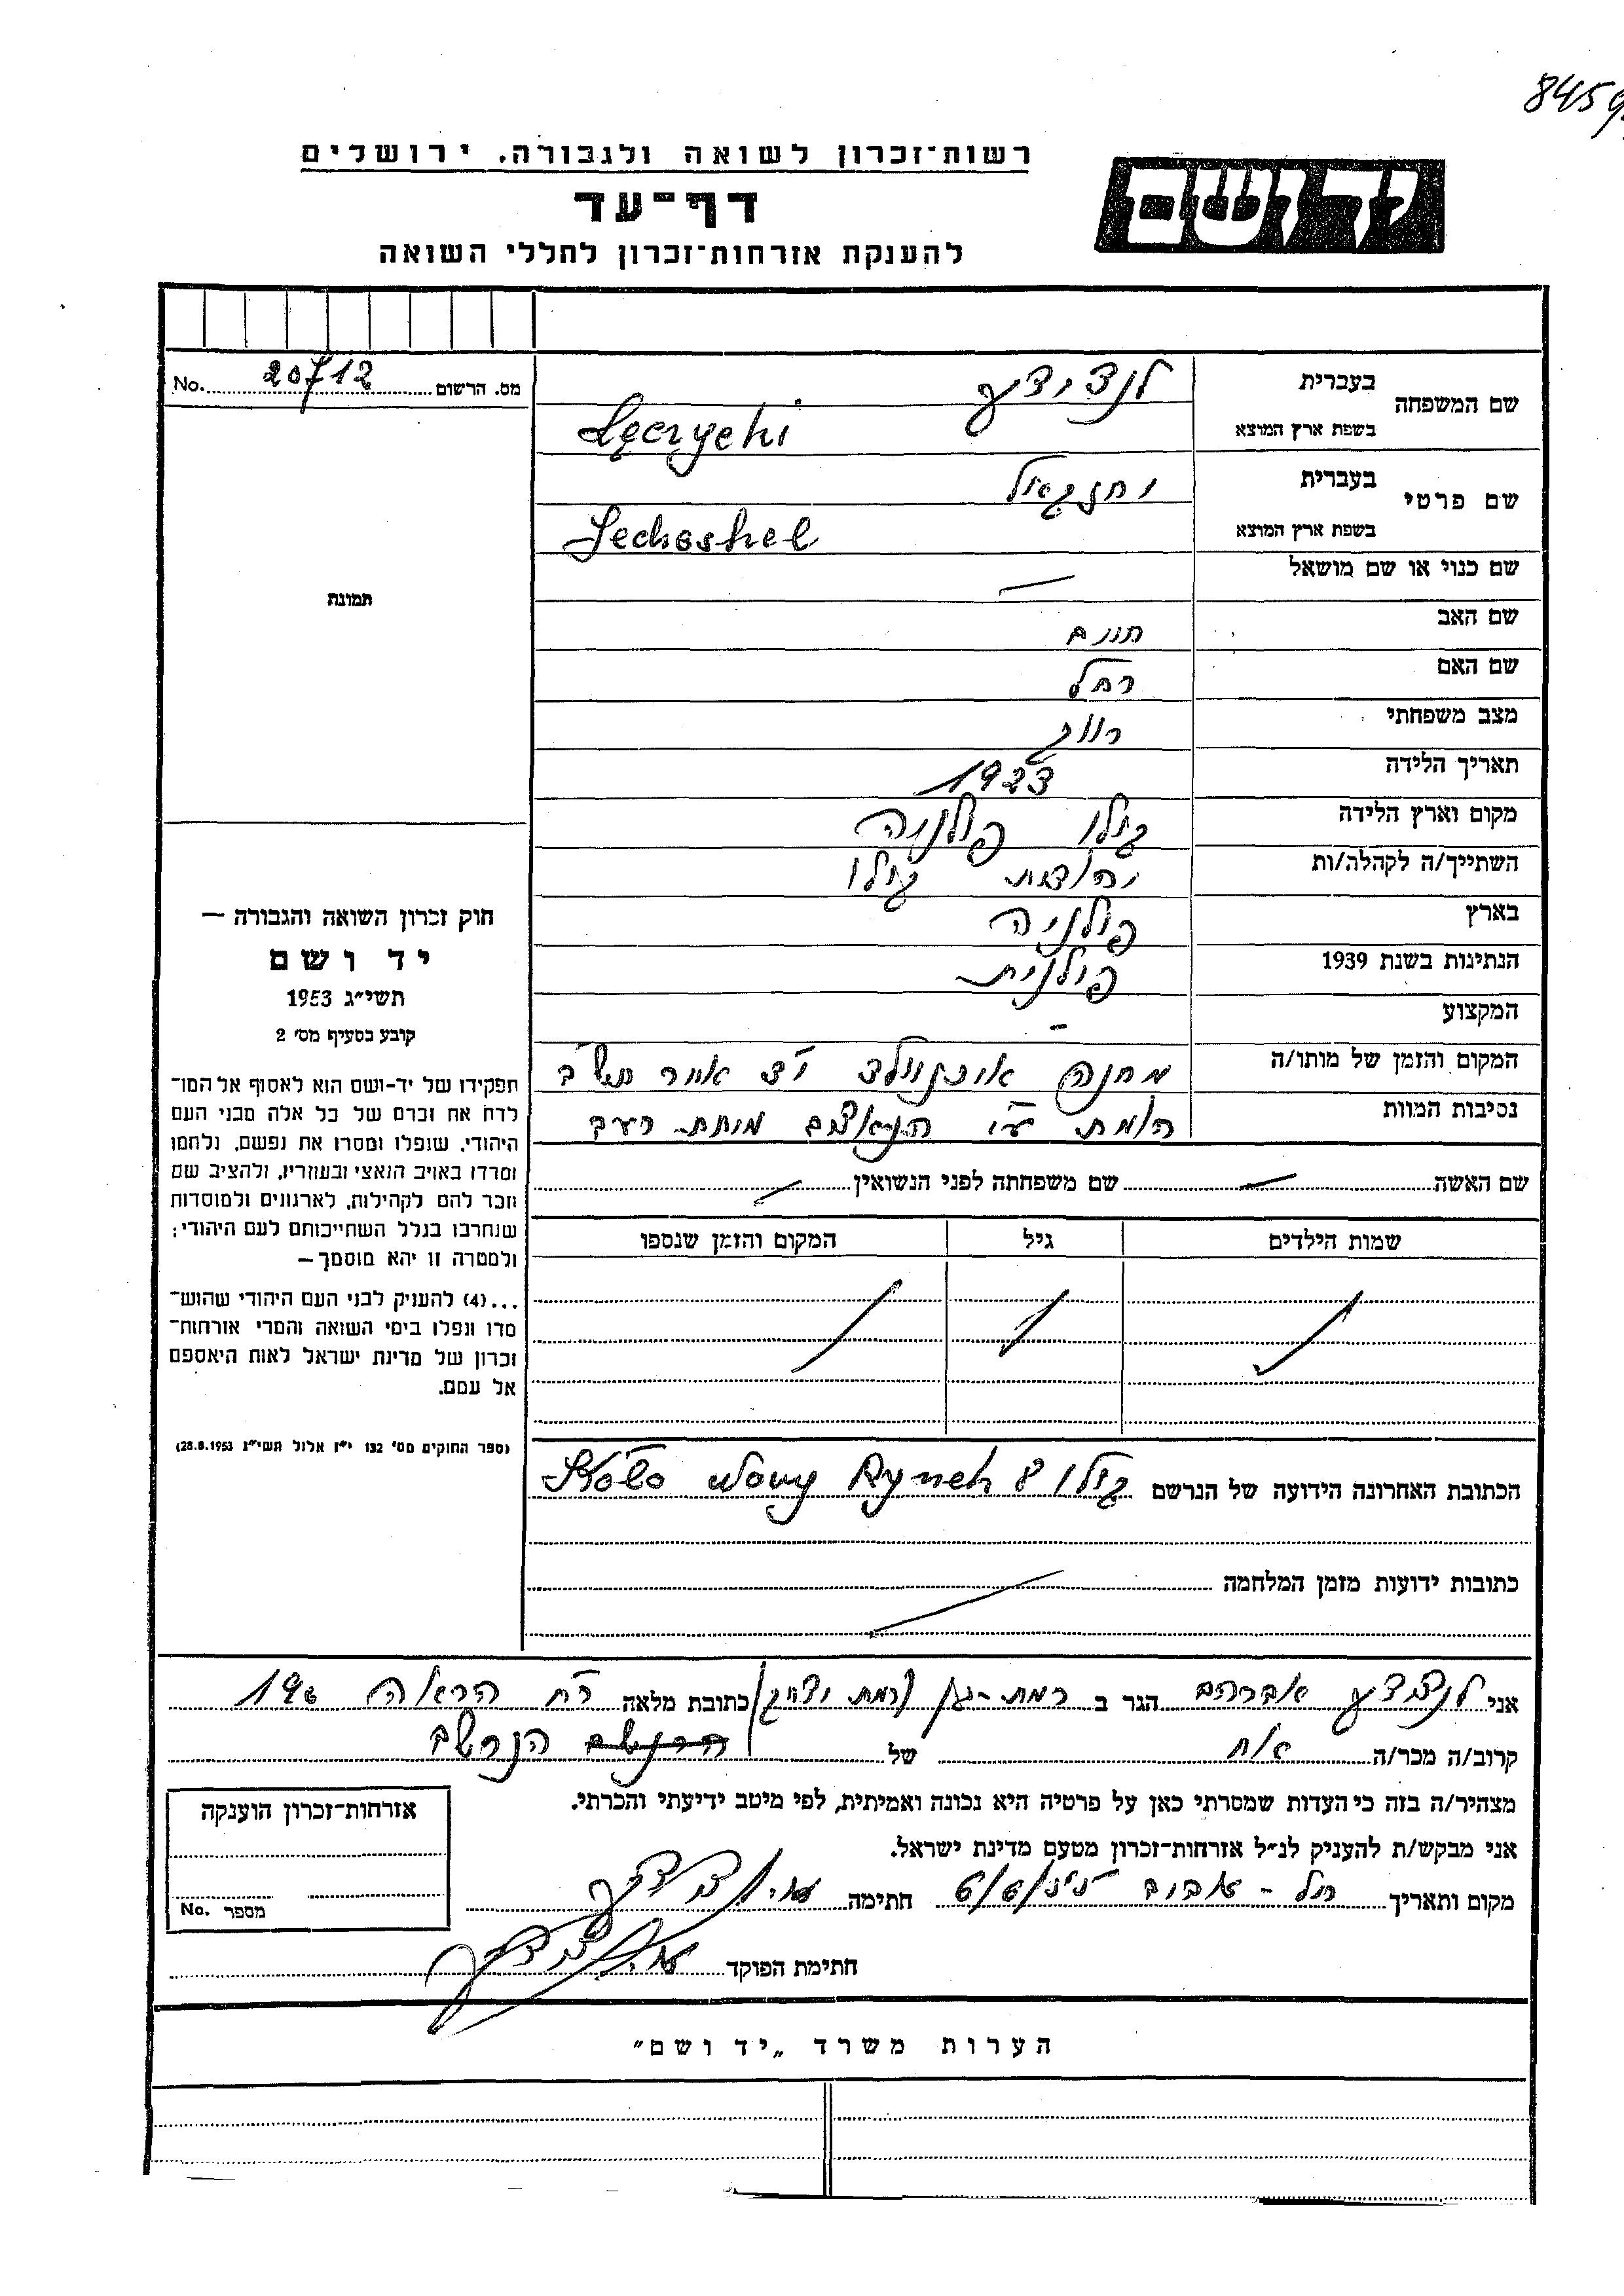 רשות־זכרון לשואה ולגבורה. ירושלים
יד ושם
דף־עד
להענקת אזרחות־זכרון לחללי השואה
מס. הרשום 20712 No.
שם המשפחה
בעברית
בשפת ארץ המוצא
שם פרטי
בעברית יחזקאל
בשפת ארץ המוצא
תמונה
שם כנוי או שם מושאל —
שם האב חיים
שם האם רחל
מצב משפחתי רווק
תאריך הלידה 1923
מקום וארץ הלידה קולו פולניה
השתייך/ה לקהלה/ות יהודית קולו
בארץ פולניה
הנתינות בשנת 1939 פולנית
המקצוע -
המקום והזמן של מותו/ה מחנה
נסיבות המוות הומת ע״י הנאצים מיתת רעב
שם האשה — שם משפחתה לפני הנשואין —
שמות הילדים גיל המקום והזמן שנספו
חוק זכרון השואה והגבורה —
יד ושם
תשי״ג 1953
קובע בסעיף מס׳ 2
תפקידו של יד-ושם הוא לאסוף אל המו־
לדת את זכרם של כל אלה מבני העם
היהודי, שנפלו ומסרו את נפשם, נלחמו
ומרדו באויב הנאצי ובעוזריו, ולהציב שם
וזכר להם לקהילות, לארגונים ולמוסדות
שנחרבו בגלל השתייכותם לעם היהודי;
ולמטרה זו יהא מוסמך —
...(4) להעניק לבני העם היהודי שהוש־
מדו ונפלו בימי השואה והמרי אזרחות־
זכרון של מדינת ישראל לאות היאספם
אל עמם.
(ספר החוקים מס׳ 132 י״ז אלול תשי״ג 28.8.1953)
הכתובת האחרונה הידועה של הנרשם קולו Nowy Rynek 8
כתובות ידועות מזמן המלחמה
אני אברהם הגר ב רמת-גן (רמת יצחק) כתובת מלאה רח הרא״ה
קרוב/ה מכר/ה אח של הנרשם
מצהיר/ה בזה כי העדות שמסרתי כאן על פרטיה היא נכונה ואמיתית, לפי מיטב ידיעתי והכרתי.
אני מבקש/ת להעניק לנ״ל אזרחות־זכרון מטעם מדינת ישראל.
מקום ותאריך תל-אביב חתימה
חתימת הפוקד
אזרחות־זכרון הוענקה
מספר No.
הערות משרד „יד ושם״